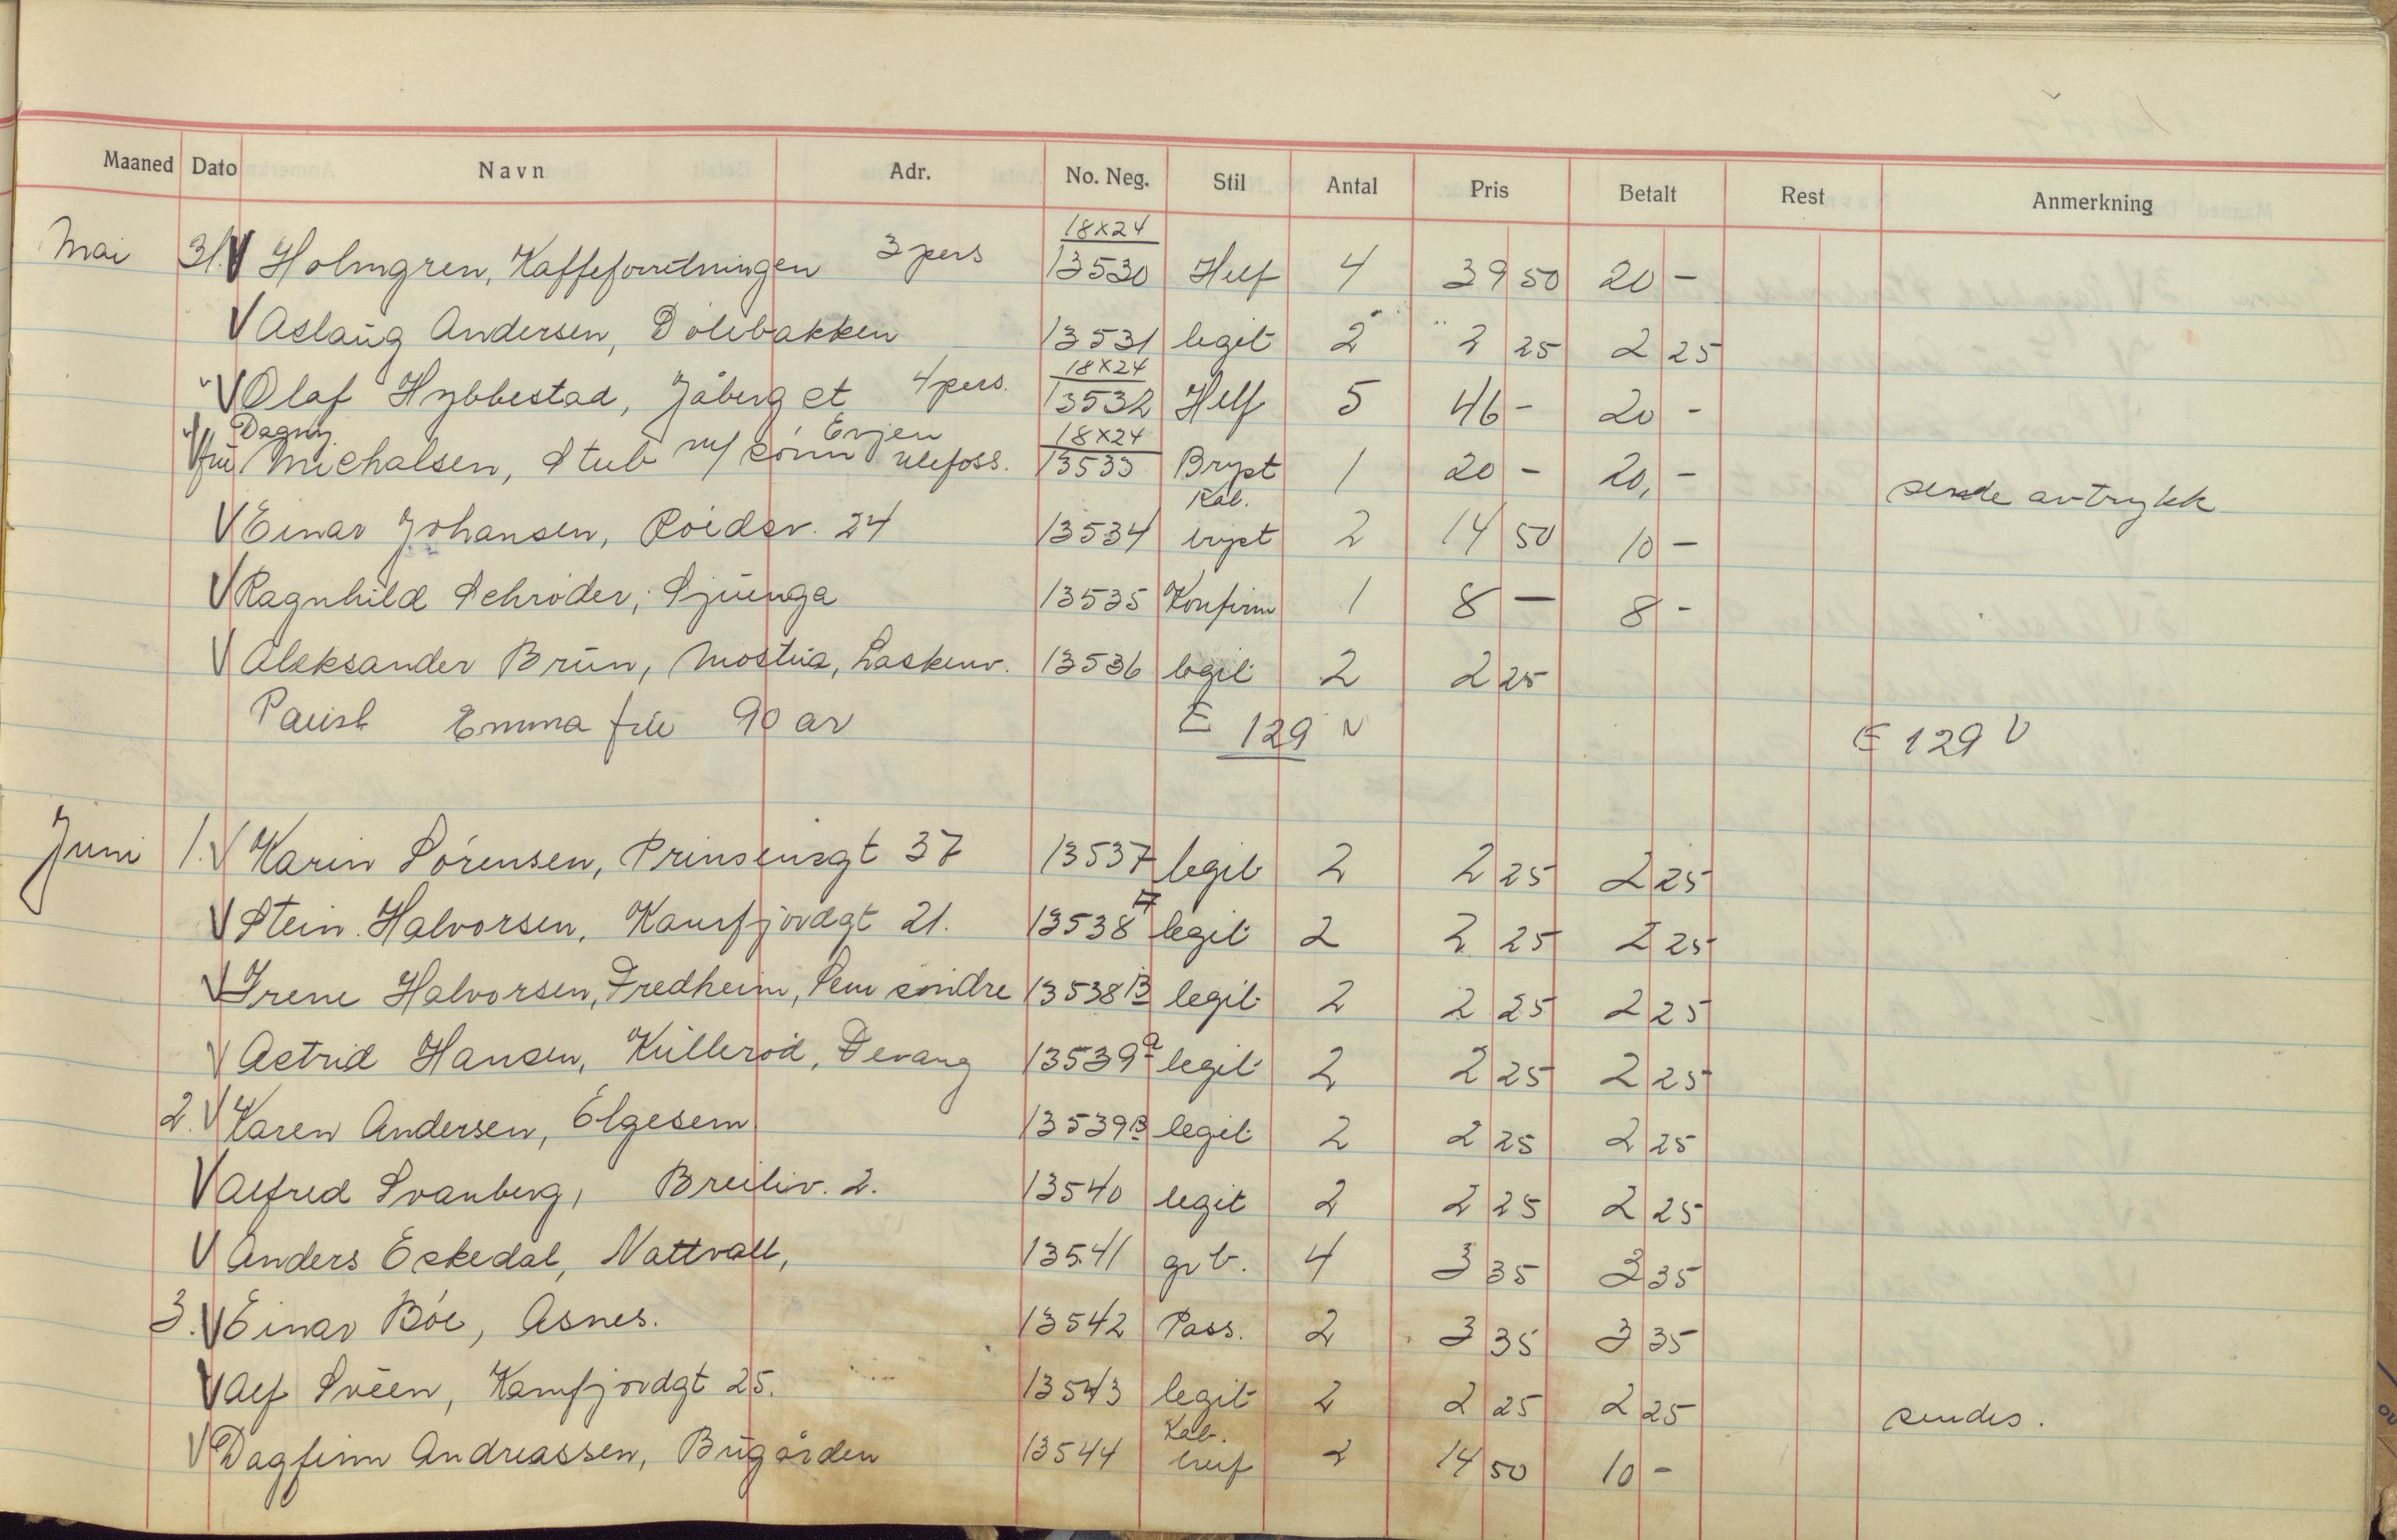 Maaned Dato Navn Adr. No. Neg. Stil Antal Pris Betalt Rest Anmerkning
18x24
Mai 31. V Holmgren, Kaffeforretningen 3 pers 13530 Helf 4 39 50 20 -
V Aslaug Andersen, Dölebakken 13531 legit 2 2 25 2 25
18x24
V Olaf Hybbestad, Jåberg st 4 pers. 13532 Helf 5 46 - 20 -
Dagny Evjen 18x24
V fru Michalsen, Stub m/ sönn Ulefoss. 13533 Bryst 1 20 - 20, - sende avtrykk
Kab.
V Einar Johansen, 24 13534 bryst 2 14 50 10 -
V Ragnhild Schröder, 13535 Konfirm 1 8 - 8 -
V Aleksander Brun, 13536 legit 2 2 25
Emma fru 90 år E 129 V E 129 V
Juni 1. V Karin Sörensen, Prinsensgt 37 13537 legit 2 2 25 2 25
V Stein Halvorsen, Kamfjordgt 21. 13538 A legit 2 2 25 2 25
V Irene Halvorsen, Fredheim, Sem söndre 13538 B legit 2 2 25 2 25
V Astrid Hansen, Kulleröd, 13539 a legit 2 2 25 2 25
2. V Karen Andersen, Elgesem 13539 B legit 2 2 25 2 25
V Alfred Svanberg, Breiliv. 2. 13540 legit 2 2 25 2 25
V Anders Eskedal, Nattvall, 13541 4 3 35 3 35
3. V Einar Böe, Asnes. 13542 Pass. 2 3 35 3 35
V Alf Svéen, Kamfjordgt 25. 13543 legit 2 2 25 2 25 sendes.
Kab.
V Dagfinn Andreassen, Bugården 13544 2 14 50 10 -